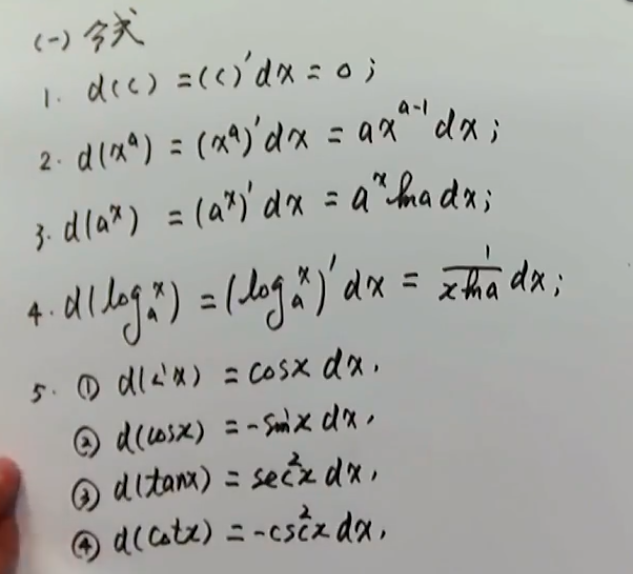 (一) 公式
1. d(c) = (c)'dx = 0;
2. d(xᵃ) = (xᵃ)'dx = axᵃ⁻¹dx;
3. d(aˣ) = (aˣ)'dx = aˣlna dx;
4. d(logₐˣ) = (logₐˣ)'dx = 1/(xlna) dx;
5. ① d(sinx) = cosx dx.
② d(cosx) = -sinx dx,
③ d(tanx) = sec²x dx,
④ d(cotx) = -csc²x dx,